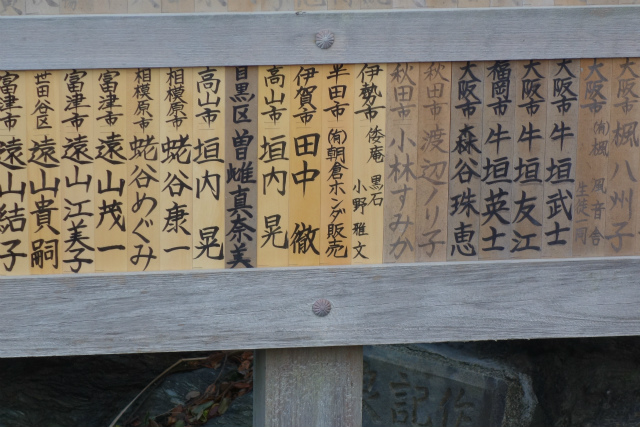 大阪市 楓 八州子
大阪市 ㈲楓 風音舎
大阪市 牛垣武士
大阪市 牛垣友江
福岡市 牛垣英士
大阪市 森谷珠恵
秋田市 渡辺ノリ子
秋田市 小林すみか
伊勢市 倭庵 黒石 小野雅文
半田市 ㈲朝倉ホンダ販売
伊賀市 田中 徹
高山市 垣内 晃
目黒区 曽雌真奈美
高山市 垣内 晃
相模原市 蛯谷康一
相模原市 蛯谷めぐみ
富津市 遠山茂一
富津市 遠山江美子
世田谷区 遠山貴嗣
富津市 遠山結子
記